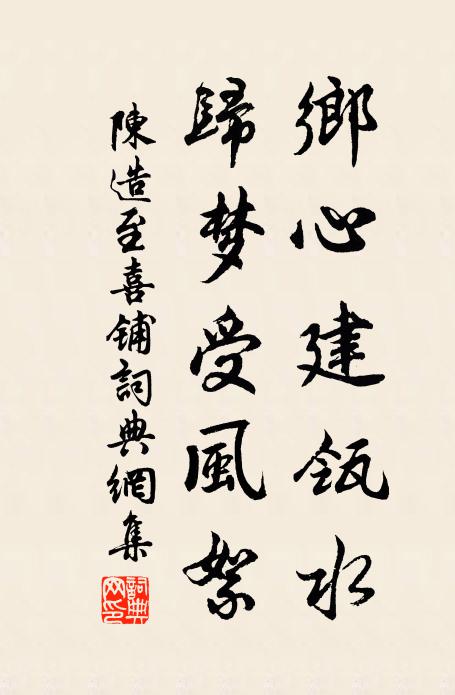 鄉心建瓴水
歸梦受風絮
陳造至喜鋪詞典網集
詞典网印